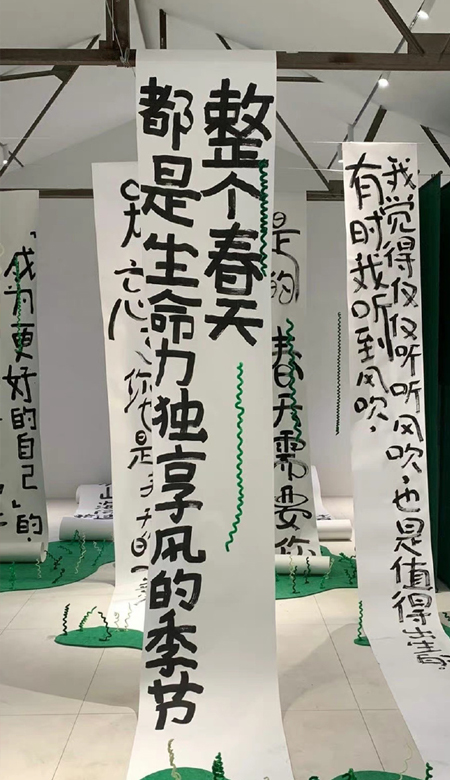 整个春天
都是生命力独享风的季节
有时我听到风吹，
我觉得仅仅听听风吹，也是值得出生的
“成为更好的自己”的，
是的
春天需要你